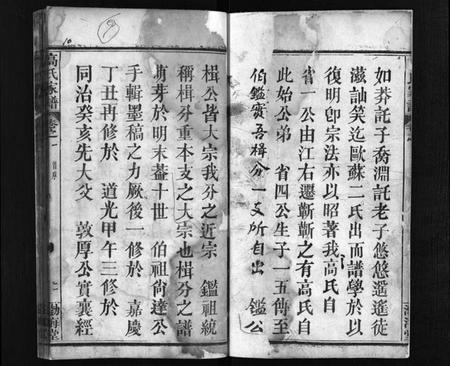 如莽託子喬淵託老子悠悠遙遙徒
滋訕笑迄歐蘇二氏出而譜學於以
復明卽宗法亦以昭著我高氏自
省一公由江右遷靳靳之有高氏自
此始公弟 省四公生子一五傳至
伯鑑實吾楫分一支所自出 鑑公
楫公皆大宗我分之近宗 鑑祖統
稱楫分重本支之大宗也楫分之譜
萌芽於明末葢十世 伯祖尙達公
手輯墨稿之力厥後一修於 嘉慶
丁丑再修於 道光甲午三修於
同治癸亥先大父 敦厚公實襄經
高氏家譜 卷一 譜序
渤海堂